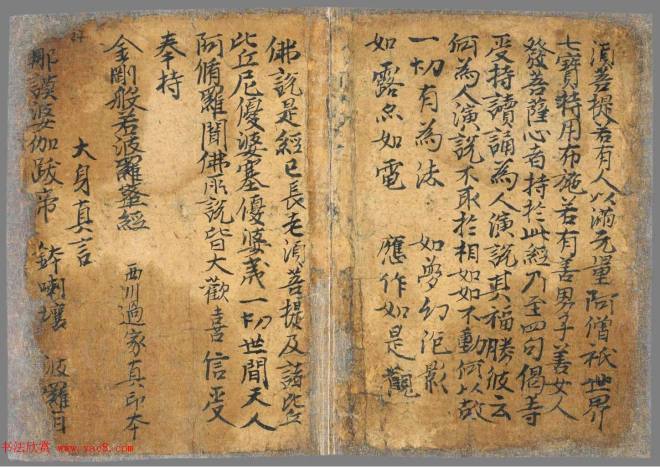 須菩提若有人以滿无量阿僧祇世界
七寶持用布施若有善男子善女人
發菩薩心者持於此經乃至四句偈等
受持讀誦為人演說其福勝彼云
何為人演說不取於相如如不動何以故
一切有為法 如夢幻泡影
如露亦如電 應作如是觀
佛說是經已長老須菩提及諸比丘
比丘尼優婆塞優婆夷一切世間天人
阿脩羅聞佛所說皆大歡喜信受
奉持
金剛般若波羅蜜經
西川過家真印本
大身真言
那謨婆伽跋帝 鉢喇壤 波羅
书法欣赏 www.yac8.com